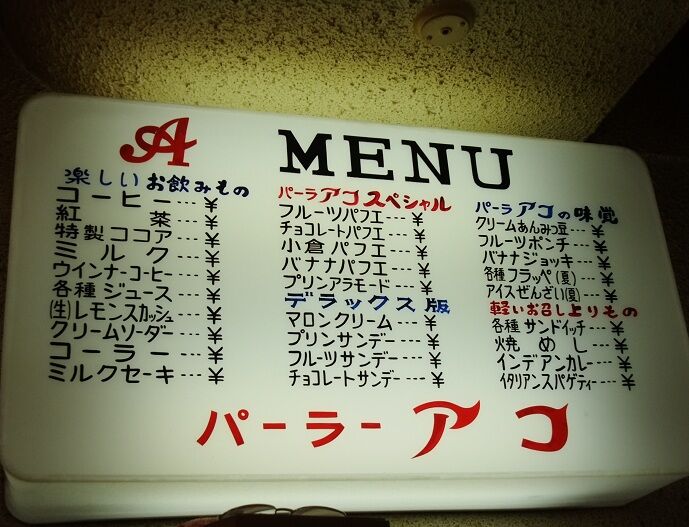 A MENU
楽しいお飲みもの
コーヒー…¥
紅茶…¥
特製ココア…¥
ミルク…¥
ウインナーコーヒー…¥
各種ジュース…¥
(生)レモンスカッシュ…¥
クリームソーダー…¥
コーラー…¥
ミルクセーキ…¥
パーラアコスペシャル
フルーツパフエ…¥
チョコレートパフエ…¥
小倉パフエ…¥
バナナパフエ…¥
プリンアラモード…¥
デラックス版
マロンクリーム…¥
プリンサンデー…¥
フルーツサンデー…¥
チョコレートサンデー…¥
パーラアコの味覚
クリームあんみつ豆…¥
フルーツポンチ…¥
バナナジョッキ…¥
各種フラッペ(夏)…¥
アイスぜんざい(夏)…¥
軽いお召し上りもの
各種サンドイッチ…¥
焼めし…¥
インデアンカレー…¥
イタリアンスパゲティー…¥
パーラーアコ